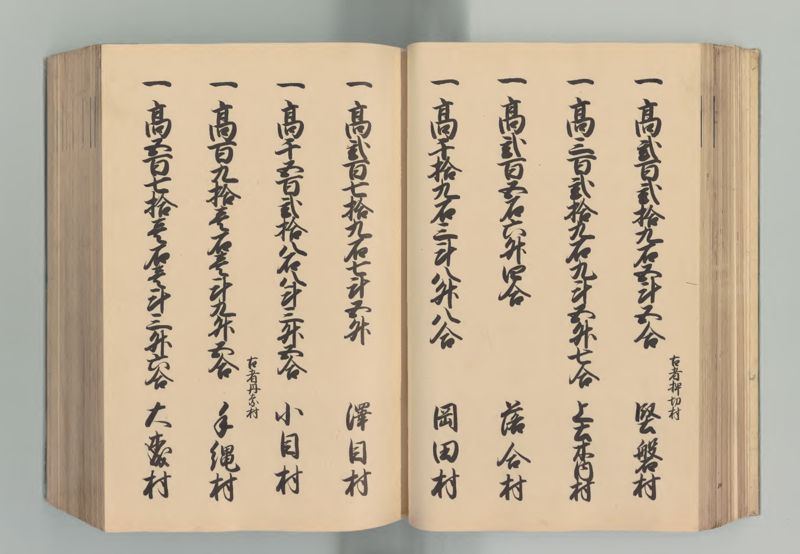 一 高弐百弐拾九石五斗五合
古者押切村
堅磐村
一 高三百弐拾九石九斗五升七合
上木内村
一 高弐百五石六升四合
落合村
一 高千拾九石三斗八升八合
岡田村
一 高弐百七拾九石七斗五升
澤目村
一 高千五百弐拾八石八斗三升五合
小目村
一 高百九拾壱石壱斗九升五合
古者丹奈村
手縄村
一 高五百七拾壱石壱斗三升六合
大森村